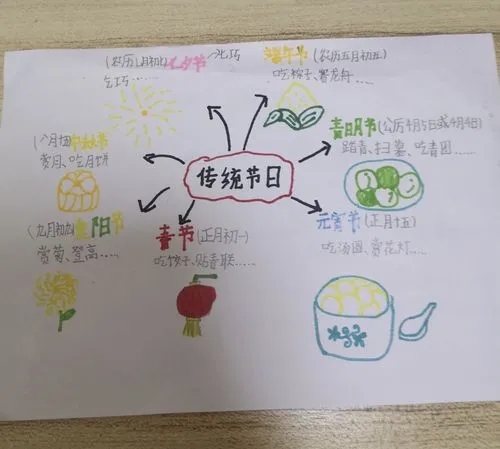 七夕节
乞巧……
端午节(农历五月初五)
吃粽子、赛龙舟……
清明节(公历4月5日或4月4日)
踏青、扫墓、吃青团……
中秋节
赏月、吃月饼
传统节日
(九月初九)重阳节
赏菊、登高……
春节(正月初一)
吃饺子、贴春联……
元宵节(正月十五)
吃汤圆、赏花灯……